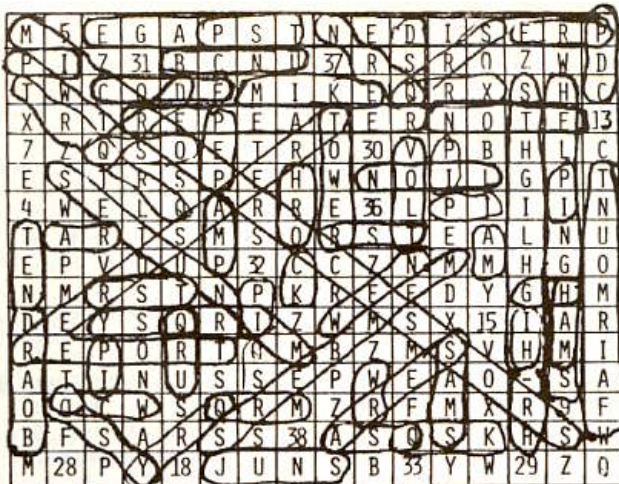 M 5 E G A P S T N E D I S E R P
P I Z 31 B C N U 37 R S R O Z W D
T W C Q D E M I K E Q R X S H C
X R T R E P E A T E R N O T E 13
7 Z Q S O E T R O 30 V P B H L C
E S T R S P E H W N O I L G P T
4 W E L Q A R R E 36 L P T I I N
T A R T S M S O R S T E A L N U
E P V U P 32 C C Z N M M H G O
N M R S T N P K R E E D Y G H M
D E Y S Q R I Z W M S X 15 I A R
R E P O R T Q M B Z M S V H M I
A T I N U S S E P W E A O - S A
O O C W S Q R M Z R F M X R O F
B F S A R S S 38 A S Q S K H S W
M 28 P Y 18 J U N S B 33 Y W 29 Z Q